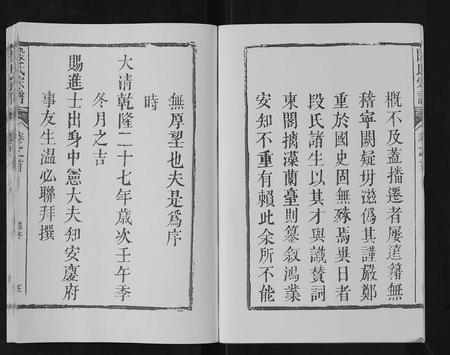 概不及蓋播遷者屢違籍無
稽寧闕疑毋滋僞其謹嚴鄭
重於國史固無殊焉異日者
段氏諸生以其才與識贊詞
東閣摛藻蘭臺則纂敘鴻業
安知不重有賴此余所不能
無厚望也夫是爲序
時
大清乾隆二十七年歲次壬午季
冬月之吉
賜進士出身中憲大夫知安慶府
事友生溫必聯拜撰
段氏宗譜
卷之首
五